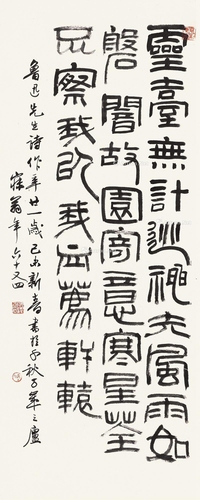 靈臺無計逃神矢風雨如
磐闇故園寄意寒星荃
不察我以我血薦軒轅
魯迅先生詩作年廿一歲己未新春書於秋之廬
翁年六十又四